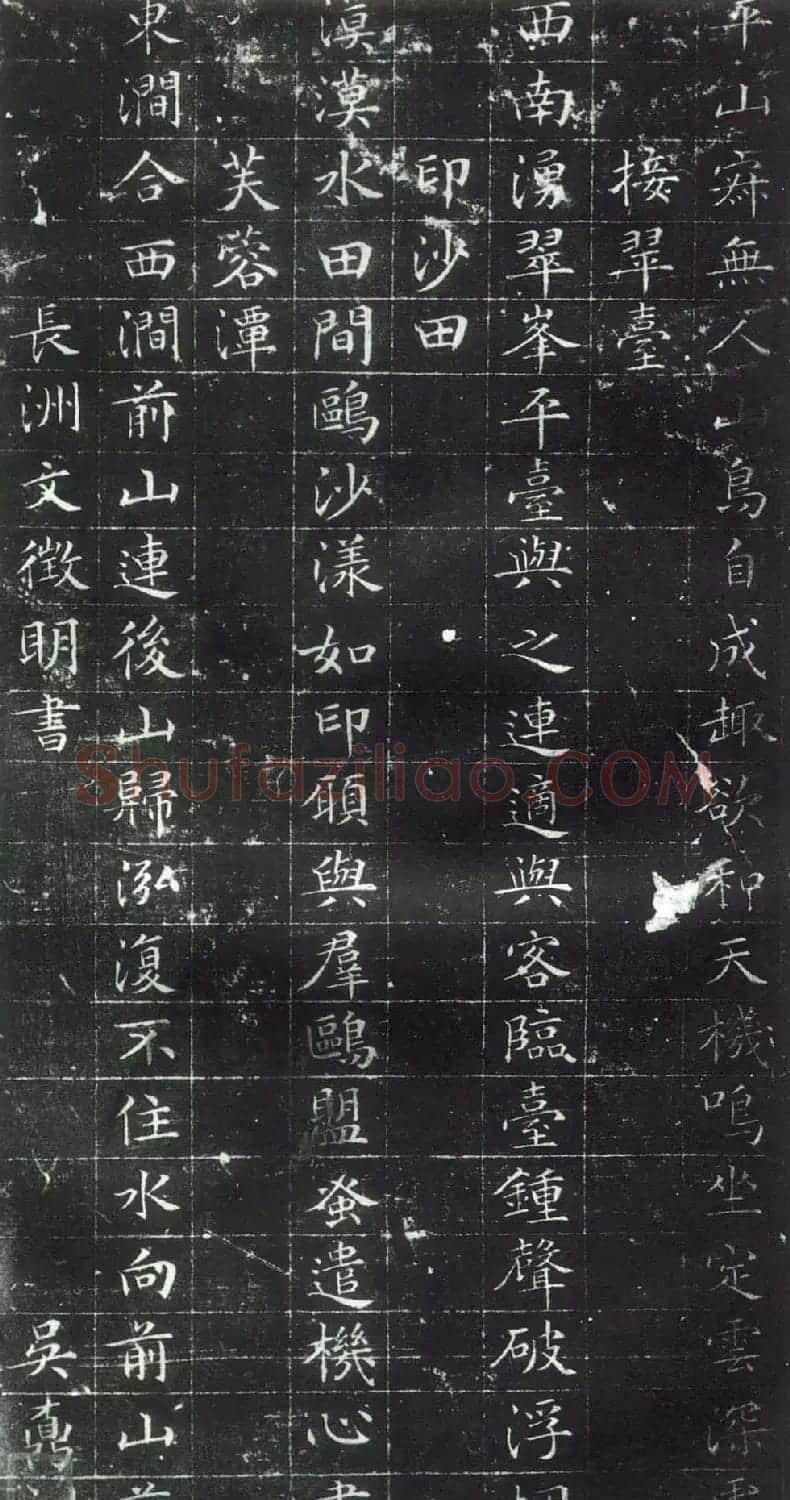 平山寂無人山鳥自成趣欲和天機鳴坐定雲深
接翠臺
西南湧翠峯平臺與之連適與客臨臺鍾聲破浮
印沙田
漠漠水田間鷗沙漾如印願與羣鷗盟蚤遣機心
芙蓉潭
東澗合西澗前山連後山歸泓復不住水向前山
長洲文徵明書 吳鼒
Shufaziliao.COM